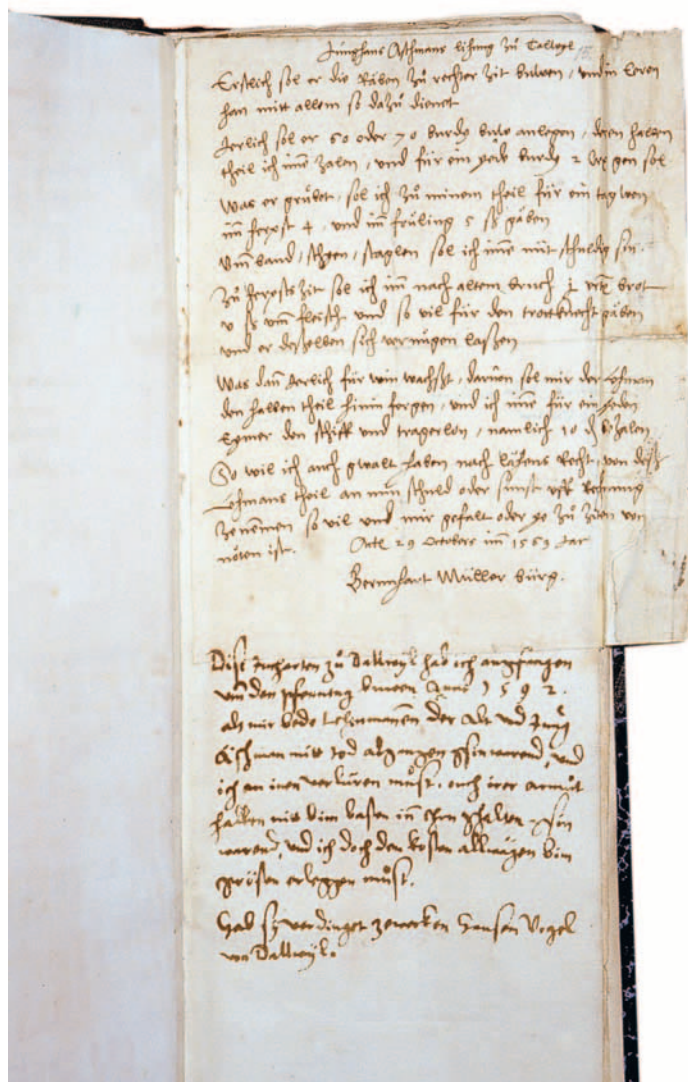 Junghans Aschmans lihung zů Tallwyl
Erstlich sol er die Räben zů rechter zit buwen, und in eeren
han mitt allem so dazů dienet
Jerlich sol er 60 oder 70 burdy buw anlegen, deren halben
theil ich imme zalen, und für ein yede burdy 2 gen sol
Was er grůbet, sol ich zů minem theil für ein tagwen
im herpst 4, und im früling 5 ß gäben
Umm band, schyen, staglen sol ich imme nüt schuldig sin.
Zů herpstzit sol ich im nach altem bruch j brot
v ß umm fleisch und so vil für den trottknecht gäben
und er desselben sich vernügen lassen
Was dann Jerlich für win wachsßt, darvon sol mir der Lehman
den halben theil hinin fergen, und ich imme für ein jeden
Eymer den schiff und tragerlon, namlich 10 d bezalen
So wil ich auch gwalt haben nach läsens Recht, von deß
Lehmans theil an min schuld oder sunst uff Rechnung
zenemen so vil und mir gefalt oder ye zů ziten von
nöten ist. Actum 29 Octobris im 1569 Jar
Bernnhart Müller bürg.
Dise Jucharten zů Dallwyl hab ich angfangen
um den pfenning buwen Anno 1592.
als mir bede Lehenmannen der Alt und Jung
Aschman mitt tod abgangen gsin warend, und
ich an inen verlüren můst. ouch irer armůt
halben nitt bim basten in Ehren ghalten gsin
warend, und ich doch den kosten allwägen bim
grösten erleggen můst.
Hab sy verdinget zewerken Hansen Vogel
von Dallwyl.